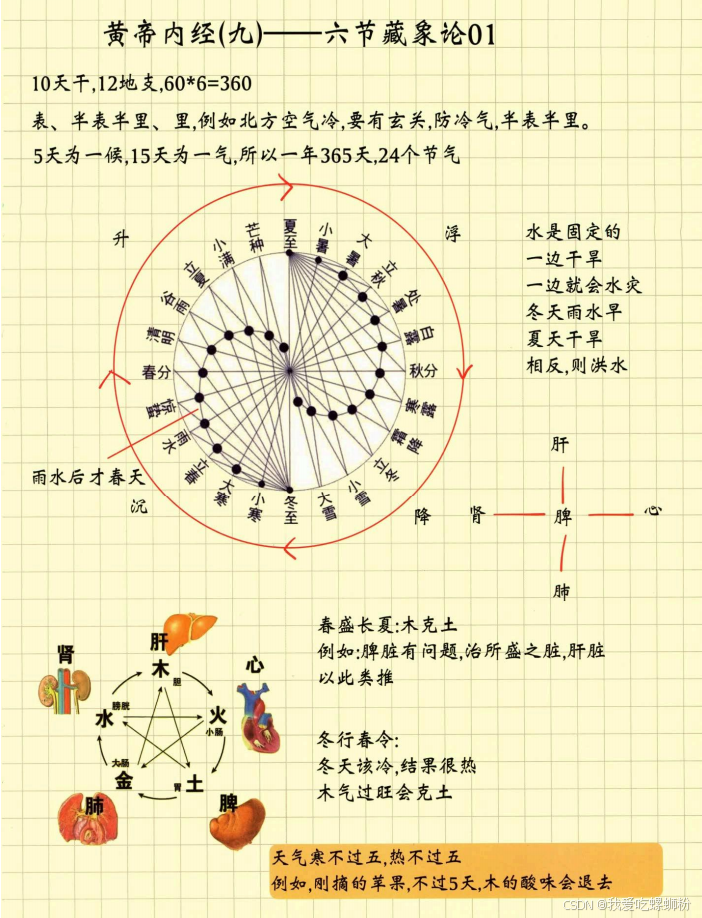 黄帝内经(九)——六节藏象论01
10天干,12地支,60*6=360
表、半表半里、里,例如北方空气冷,要有玄关,防冷气,半表半里。
5天为一候,15天为一气,所以一年365天,24个节气
升
浮
芒种
夏至
小暑
小满
大暑
立夏
立秋
谷雨
处暑
清明
白露
春分
秋分
惊蛰
寒露
雨水
霜降
立春
立冬
大寒
小雪
小寒
冬至
大雪
水是固定的
一边干旱
一边就会水灾
冬天雨水旱
夏天干旱
相反,则洪水
雨水后才春天
沉
降
肝
肾
脾
心
肺
肝
肾
心
木
胆
膀胱
水
火
小肠
大肠
金
胃
土
肺
脾
春盛长夏:木克土
例如:脾脏有问题,治所盛之脏,肝脏
以此类推
冬行春令:
冬天该冷,结果很热
木气过旺会克土
天气寒不过五,热不过五
例如,刚摘的苹果,不过5天,木的酸味会退去
CSDN @我爱吃螺蛳粉